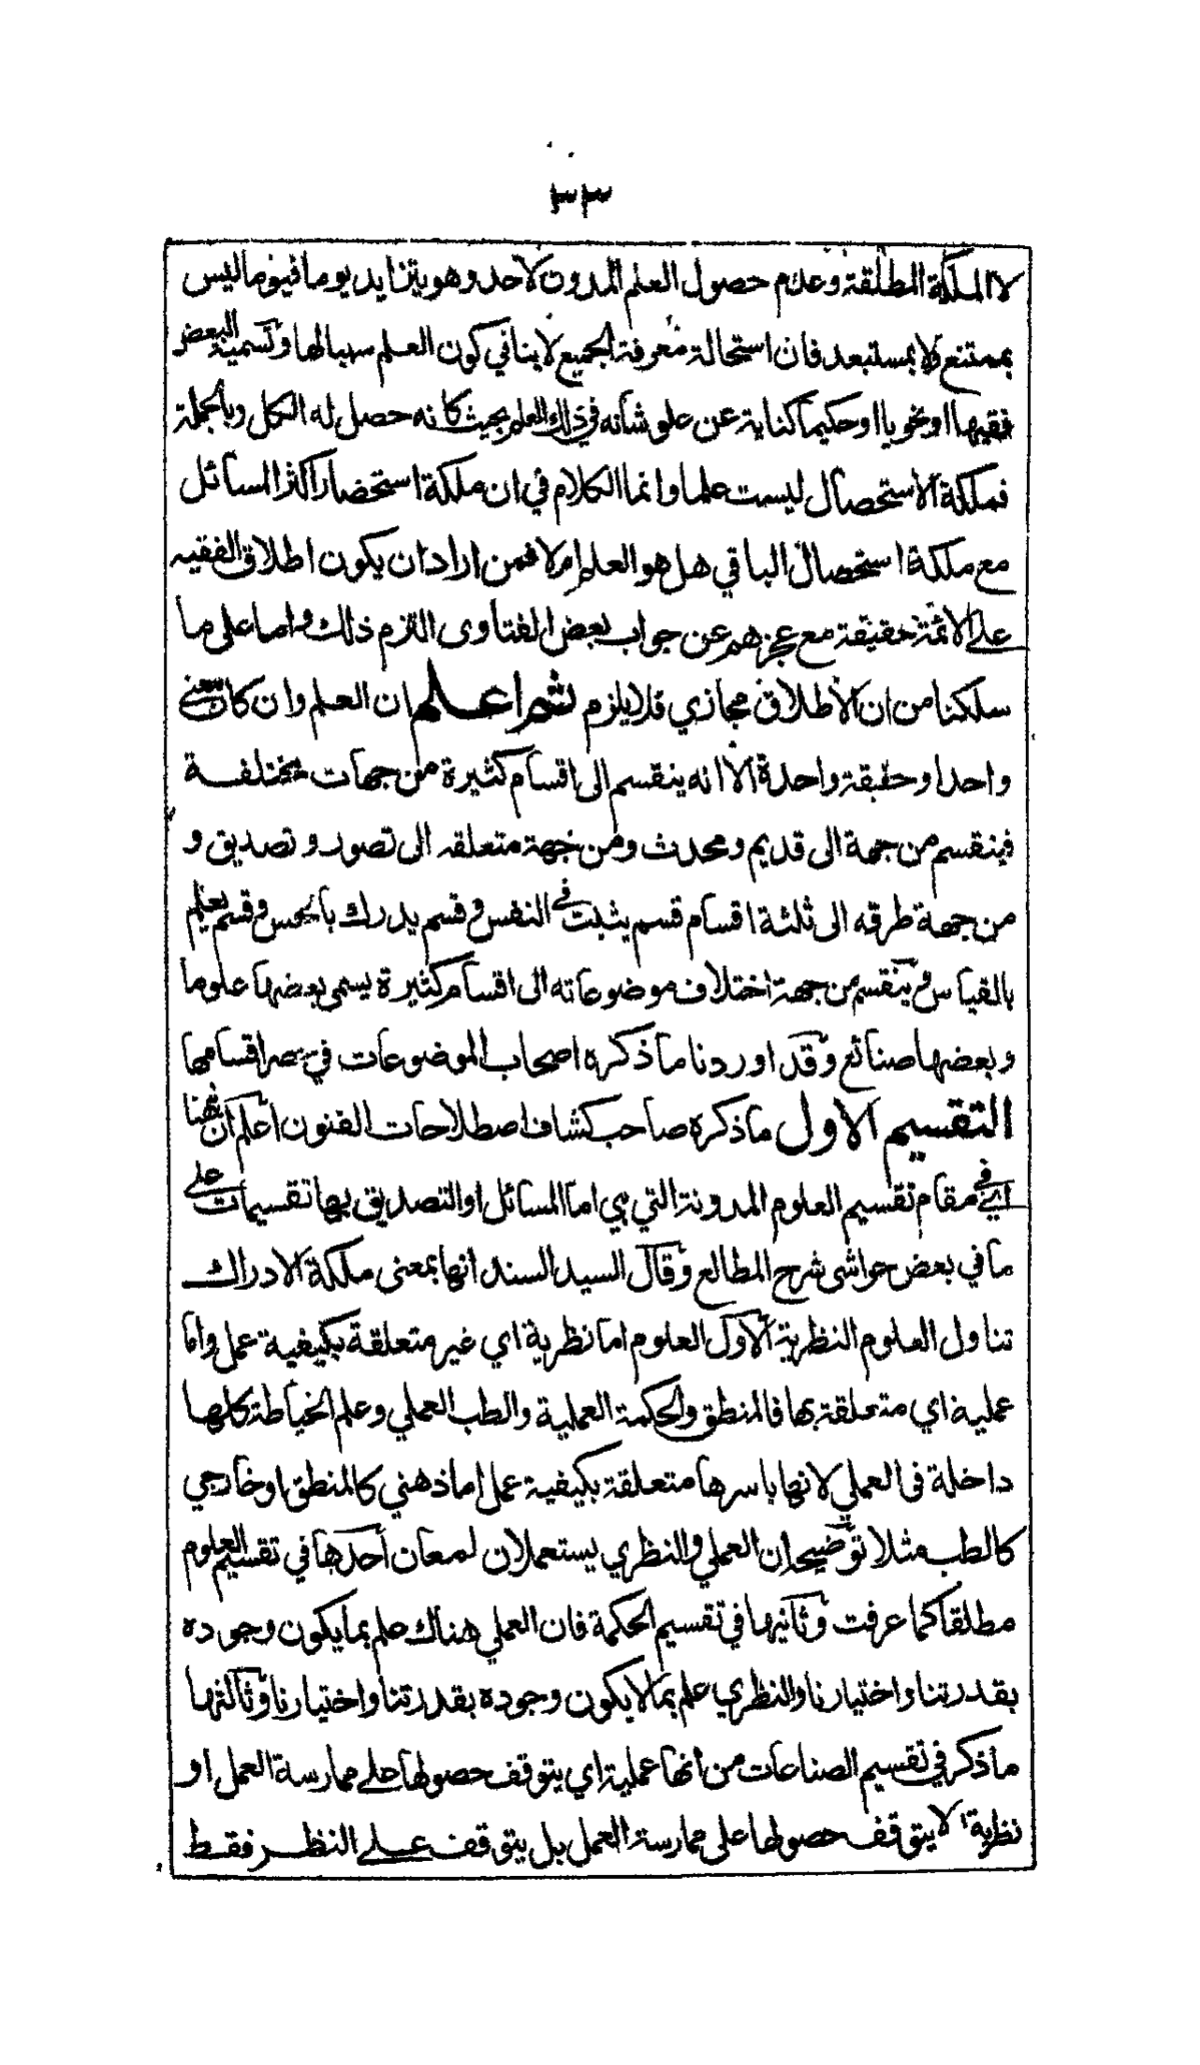 ٣٣
لا الملكة المطلقة وعدم حصول العلم المدون لاحد وهو يتزايد يوما فيوما ليس
بممتنع ولا بمستبعد فان استحالة معرفة الجميع لا ينافي كون العلم سببا لها وتسمية البعض
فقيها او نحويا او حكيما كناية عن علو شأنه في ذلك العلم بحيث كانه حصل له الكل وبالجملة
فملكة الاستحصال ليست علما وانما الكلام في ان ملكة استحضار اكثر المسائل
مع ملكة استحصال الباقي هل هو العلم ام لا فمن اراد ان يكون اطلاق الفقيه
على الائمة حقيقة مع عجزهم عن جواب بعض الفتاوى التزم ذلك واما على ما
سلكنا من ان الاطلاق مجازي فلا يلزم ثم اعلم ان العلم وان كان معنى
واحدا وحقيقة واحدة الا انه ينقسم الى اقسام كثيرة من جهات مختلفة
فينقسم من جهة الى قديم ومحدث ومن جهة متعلقه الى تصور وتصديق و
من جهة طرقه الى ثلثة اقسام قسم يثبت في النفس وقسم يدرك بالحس وقسم يعلم
بالقياس وينقسم من جهة اختلاف موضوعاته الى اقسام كثيرة يسمى بعضها علوما
وبعضها صنائع وقد اوردنا ما ذكره اصحاب الموضوعات في حصر اقسامها
التقسيم الاول ما ذكره صاحب كشاف اصطلاحات الفنون اعلم ان ههنا
اي في مقام تقسيم العلوم المدونة التي هي اما المسائل او التصديق بها تقسيمات على
ما في بعض حواشى شرح المطالع وقال السيد السند انها بمعنى ملكة الادراك
تناول العلوم النظرية الاول العلوم اما نظرية اي غير متعلقة بكيفية عمل واما
عملية اي متعلقة بها فالمنطق والحكمة العملية والطب العملي وعلم الخياطة كلها
داخلة فى العملي لانها باسرها متعلقة بكيفية عمل اما ذهني كالمنطق او خارجي
كالطب مثلا توضيحه ان العملي والنظري يستعملان لمعان أحدها في تقسيم العلوم
مطلقا كما عرفت وثانيها في تقسيم الحكمة فان العملي هناك علم بما يكون وجوده
بقدرتنا واختيارنا والنظري علم بما لا يكون وجوده بقدرتنا واختيارنا وثالثها
ما ذكر في تقسيم الصناعات من انها عملية اي يتوقف حصولها على ممارسة العمل او
نظرية لا يتوقف حصولها على ممارسة العمل بل يتوقف على النظر فقط